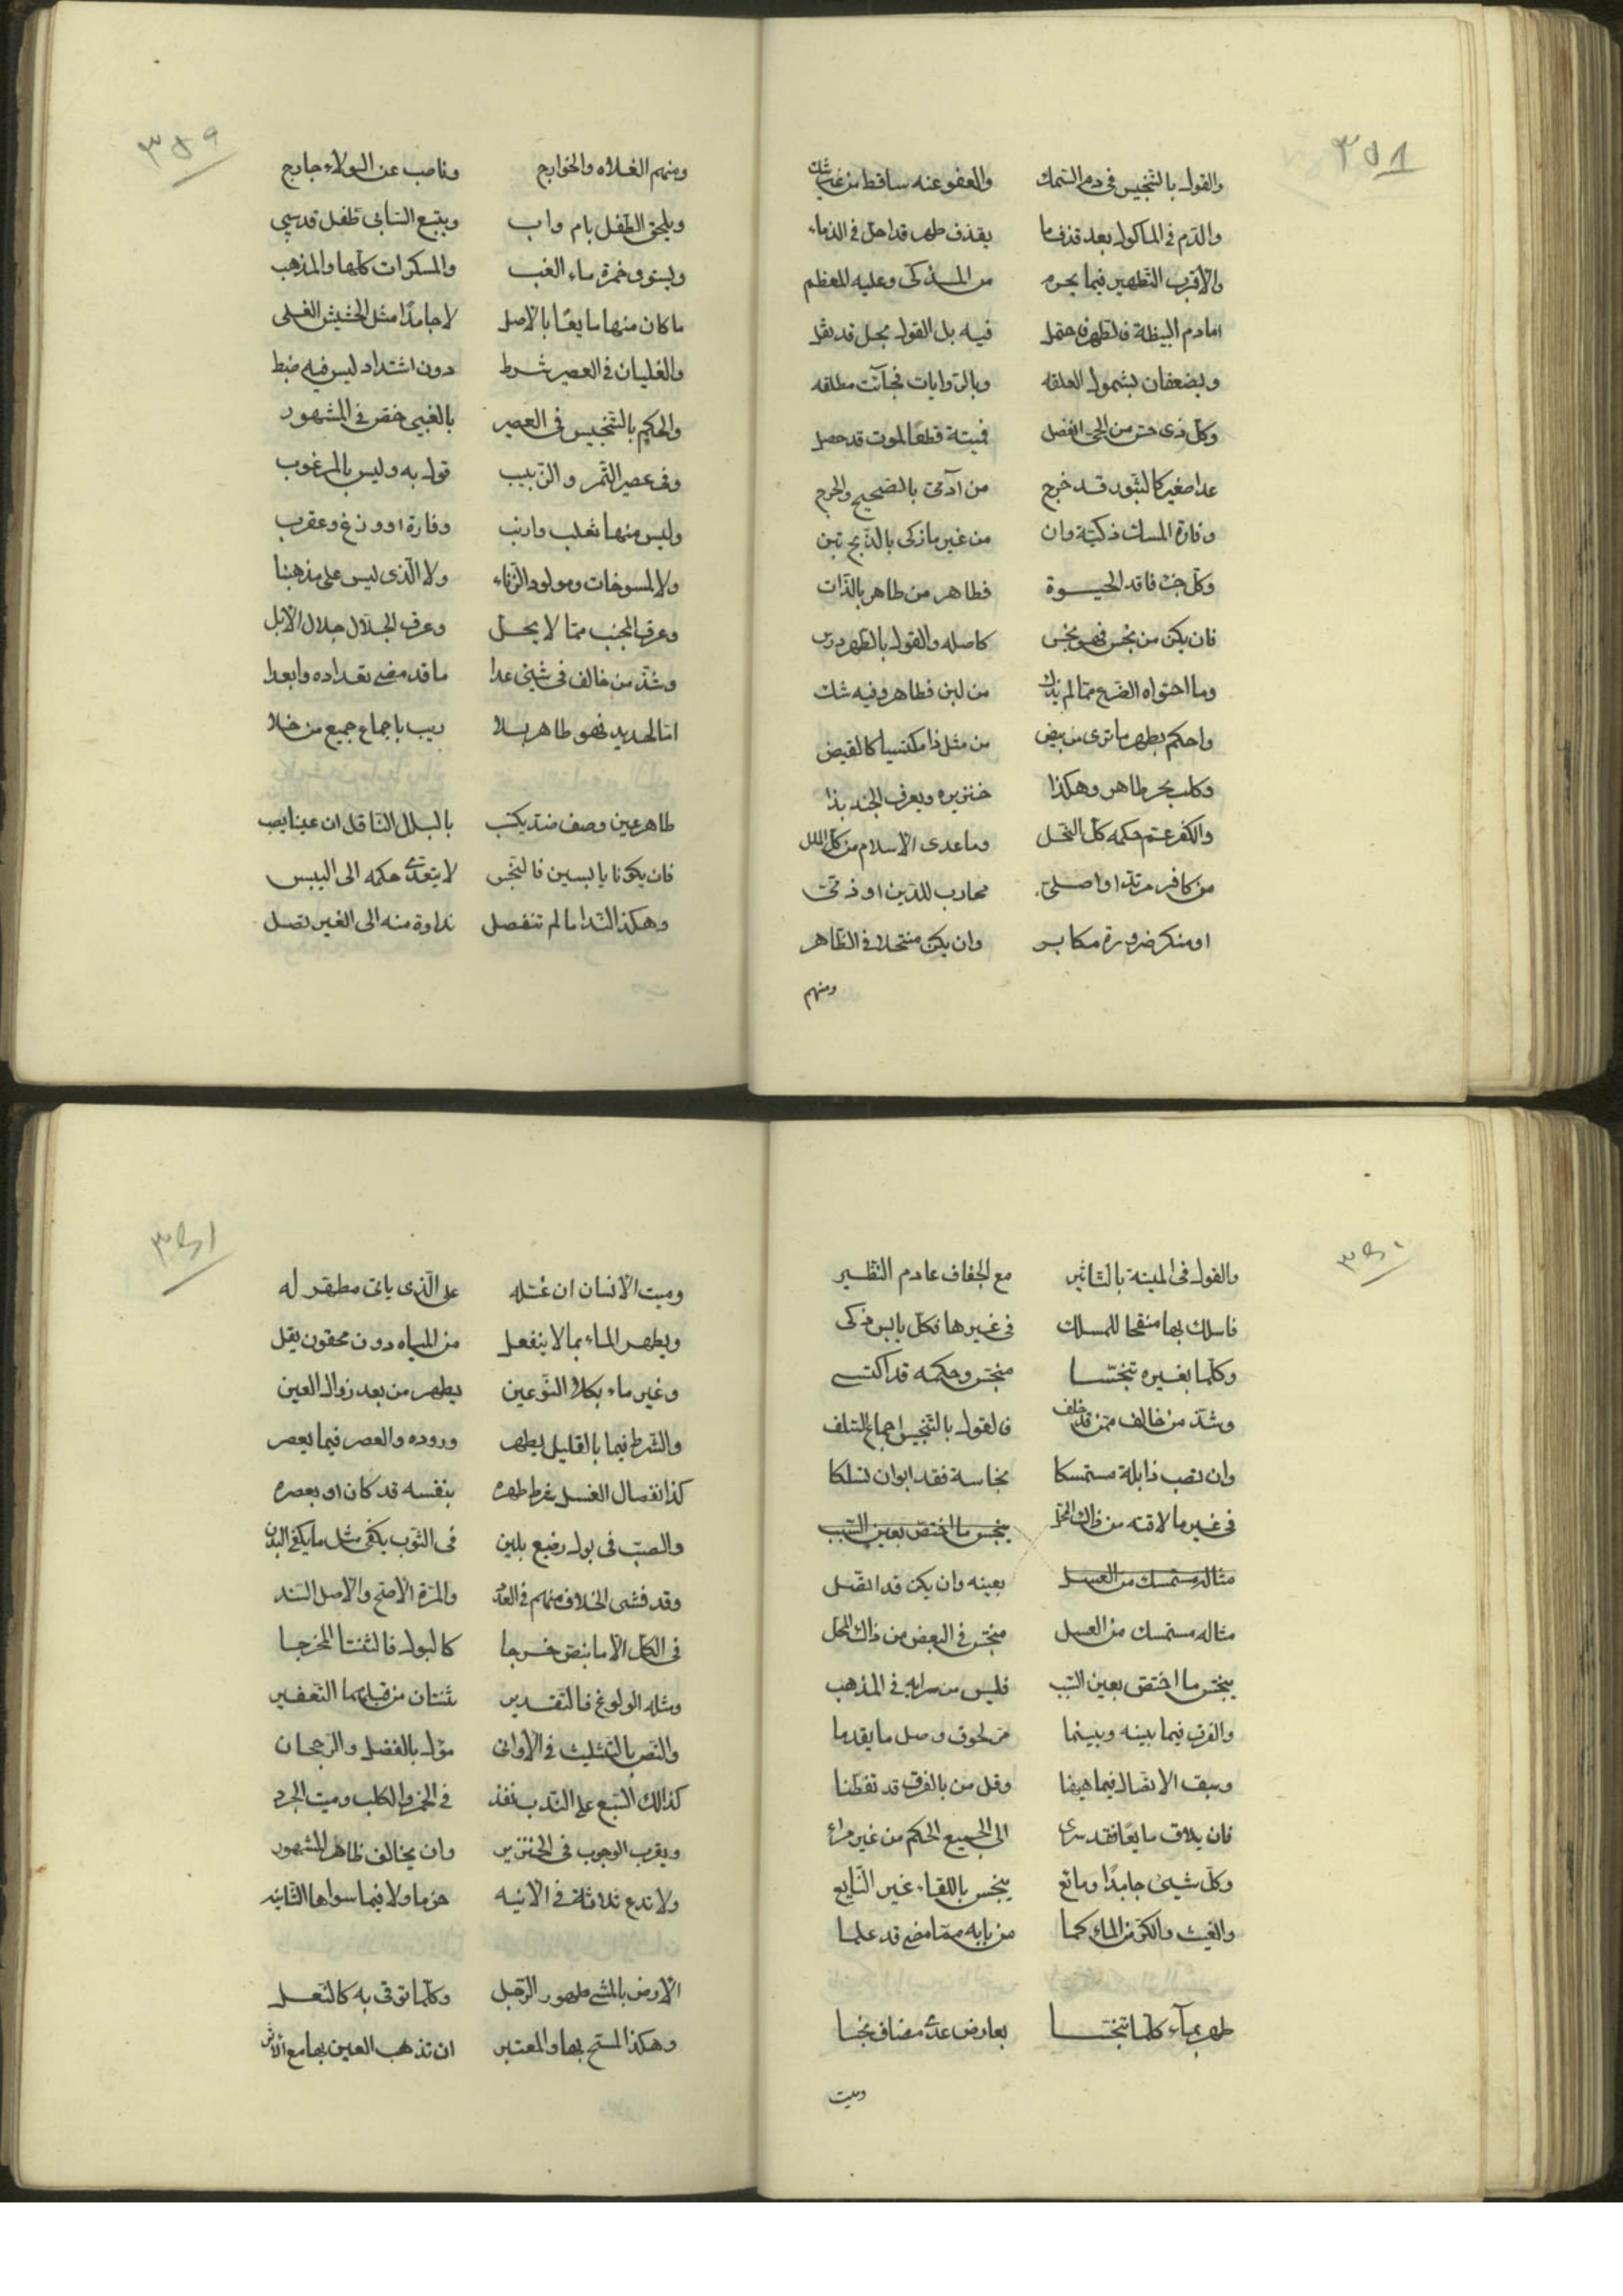 ٣٥٨
والقول بالتنجيس فى دم السمك والعفو عنه ساقط من غير شك
والدم فى الماكول بعد قذف ما يقذف طهر قد احل فى الدماء
والاقرب التطهير فيما يحرم من المذكى وعليه المعظم
اما دم البيضة فالطهر احتمل فيه بل القول بحل قد نقل
ويضعفان بشمول العلقه وبالروايات فجآئت مطلقه
وكل ذى حس من الحى انفصل فميتة قطعًا لموت قد حصل
عدا صغير كالبثور قد خرج من آدمى بالصحيح والحرج
وفارة المسك ذكية وان من غير ما ذكى بالذبح تبن
وكل جزء فاقد الحيوة فطاهر من طاهر بالذات
فان يكن من نجس فهو نجس كاصله والقول بالطهر درس
وما احتواه الضرع مما لم يذك من لبن فطاهر وفيه شك
واحكم بطهر ما ترى من بيض من مثل ذا مكتسيا كالقيض
وكلب بحر طاهر وهكذا خنزيره ويعرف الجند بذا
والكفر عتم حكمه كل النحل وما عدى الاسلام من كل الملل
من كافر مرتد او اصلى محارب للدين او ذمى
او منكر ضرورة مكابر وان يكن منتحلا فى الظاهر
ومنهم
٣٥٩
ومنهم الغلاه والخوارج وناصب عن الولاء خارج
ويلحق الطفل بام واب ويتبع السابى طفل قد سبى
ويستوى خمرة ماء العنب والمسكرات كلها والمذهب
ما كان منها مايعًا بالاصل لا جامدًا مثل الحشيش المغلى
والغليان فى العصير شرط دون اشتداد ليس فيه ضبط
والحكم بالتنجيس فى العصير بالعنبى خص فى المشهور
وفى عصير التمر والزبيب قول به وليس بالمرغوب
وليس منها ثعلب وارنب وفارة او وزغ وعقرب
ولا المسوخات ومولود الزناء ولا الذى ليس على مذهبنا
وعرق المجنب مما لا يحل وعرق الجلال جلال الابل
وشذ من خالف فى شئ عدا ما قد مضى تعداده وابعدا
اما الحديد فهو طاهر بلا ريب باجماع جميع من خلا
طاهر عين وصف ضد يكتسب بالبلل الناقل ان عينا يصب
فان يكونا يابسين فالنجس لا يتعدى حكمه الى اليبس
وهكذا الندا ما لم تنفصل نداوة منه الى الغير تصل
٣٦٠
والقول فى الميتة بالتاثير مع الجفاف عادم النظير
فاسلك بها منقحا للمسلك فى غيرها فكل يابس ذكى
وكلما بغيره تنجسا منجس وحكمه قد اكتسى
وشذ من خالف ممن قد خلف فالقول بالتنجيس اجماع السلف
وان تصب ذا بلة مستمسكا نجاسة فقد ابوان تسلكا
فى غير ما لاقته من ذاك المحل ينجس ما اختص بعين السبب
مثاله مستمسك من العسل بعينه وان يكن قد اتصل
مثاله مستمسك من العسل منجس فى البعض من ذاك المحل
ينجس ما اختص بعين السبب فليس من سرايه فى المذهب
والفرق فيما بينه وبينما من لحوق وصل ما يقدما
وسبق الاتصال فيما هيهنا وقل من بالفرق قد تفطنا
فان يلاق مايعًا فقد سرى الى الجميع الحكم من غير مراء
وكل شئ جامدًا ومائع ينجس باللقاء غير النابع
والغيث والكر من الماء كما من بابه مما مضى قد علما
طهر بمآء كلما تنجسا بعارض عدى مضاف نجسا
وميت
٣٦١
وميت الانسان ان غسله على الذى ياتى مطهر له
ويطهر الماء بما لا ينفعل من المياه دون محقون يقل
وغير ماء بكلا النوعين يطهر من بعد زوال العين
والشرط فيما بالقليل يطهر وروده والعصر فيما يعصر
كذا انفصال الغسل شرط طهره بنفسه قد كان او بعصره
والصب فى بول رضيع بلبن فى الثوب يكفى مثل ما يكفى البدن
وقد فشى الخلاف منهم فى العدد والمرة الاصح والاصل السند
فى الكل الا ما بنص خرجا كالبول فالثنتا المخرجا
ومثله الولوغ فالتقدير ثنتان من قبلهما التعفير
والنص بالتثليث فى الاوانى مؤل بالفضل والرجحان
كذالك السبع على الندب نفذ فى الخمر والكلب وميت الجرذ
ويقرب الوجوب فى الخنزير وان يخالف ظاهر المشهور
ولا تدع ثلاثة فى الانيه حزما ولا فيما سواها الثانيه
الارض بالمشى طهور الرجل وكلما توقى به كالنعل
وهكذا المسح بها والمعتبر ان تذهب العين بها مع الاثر